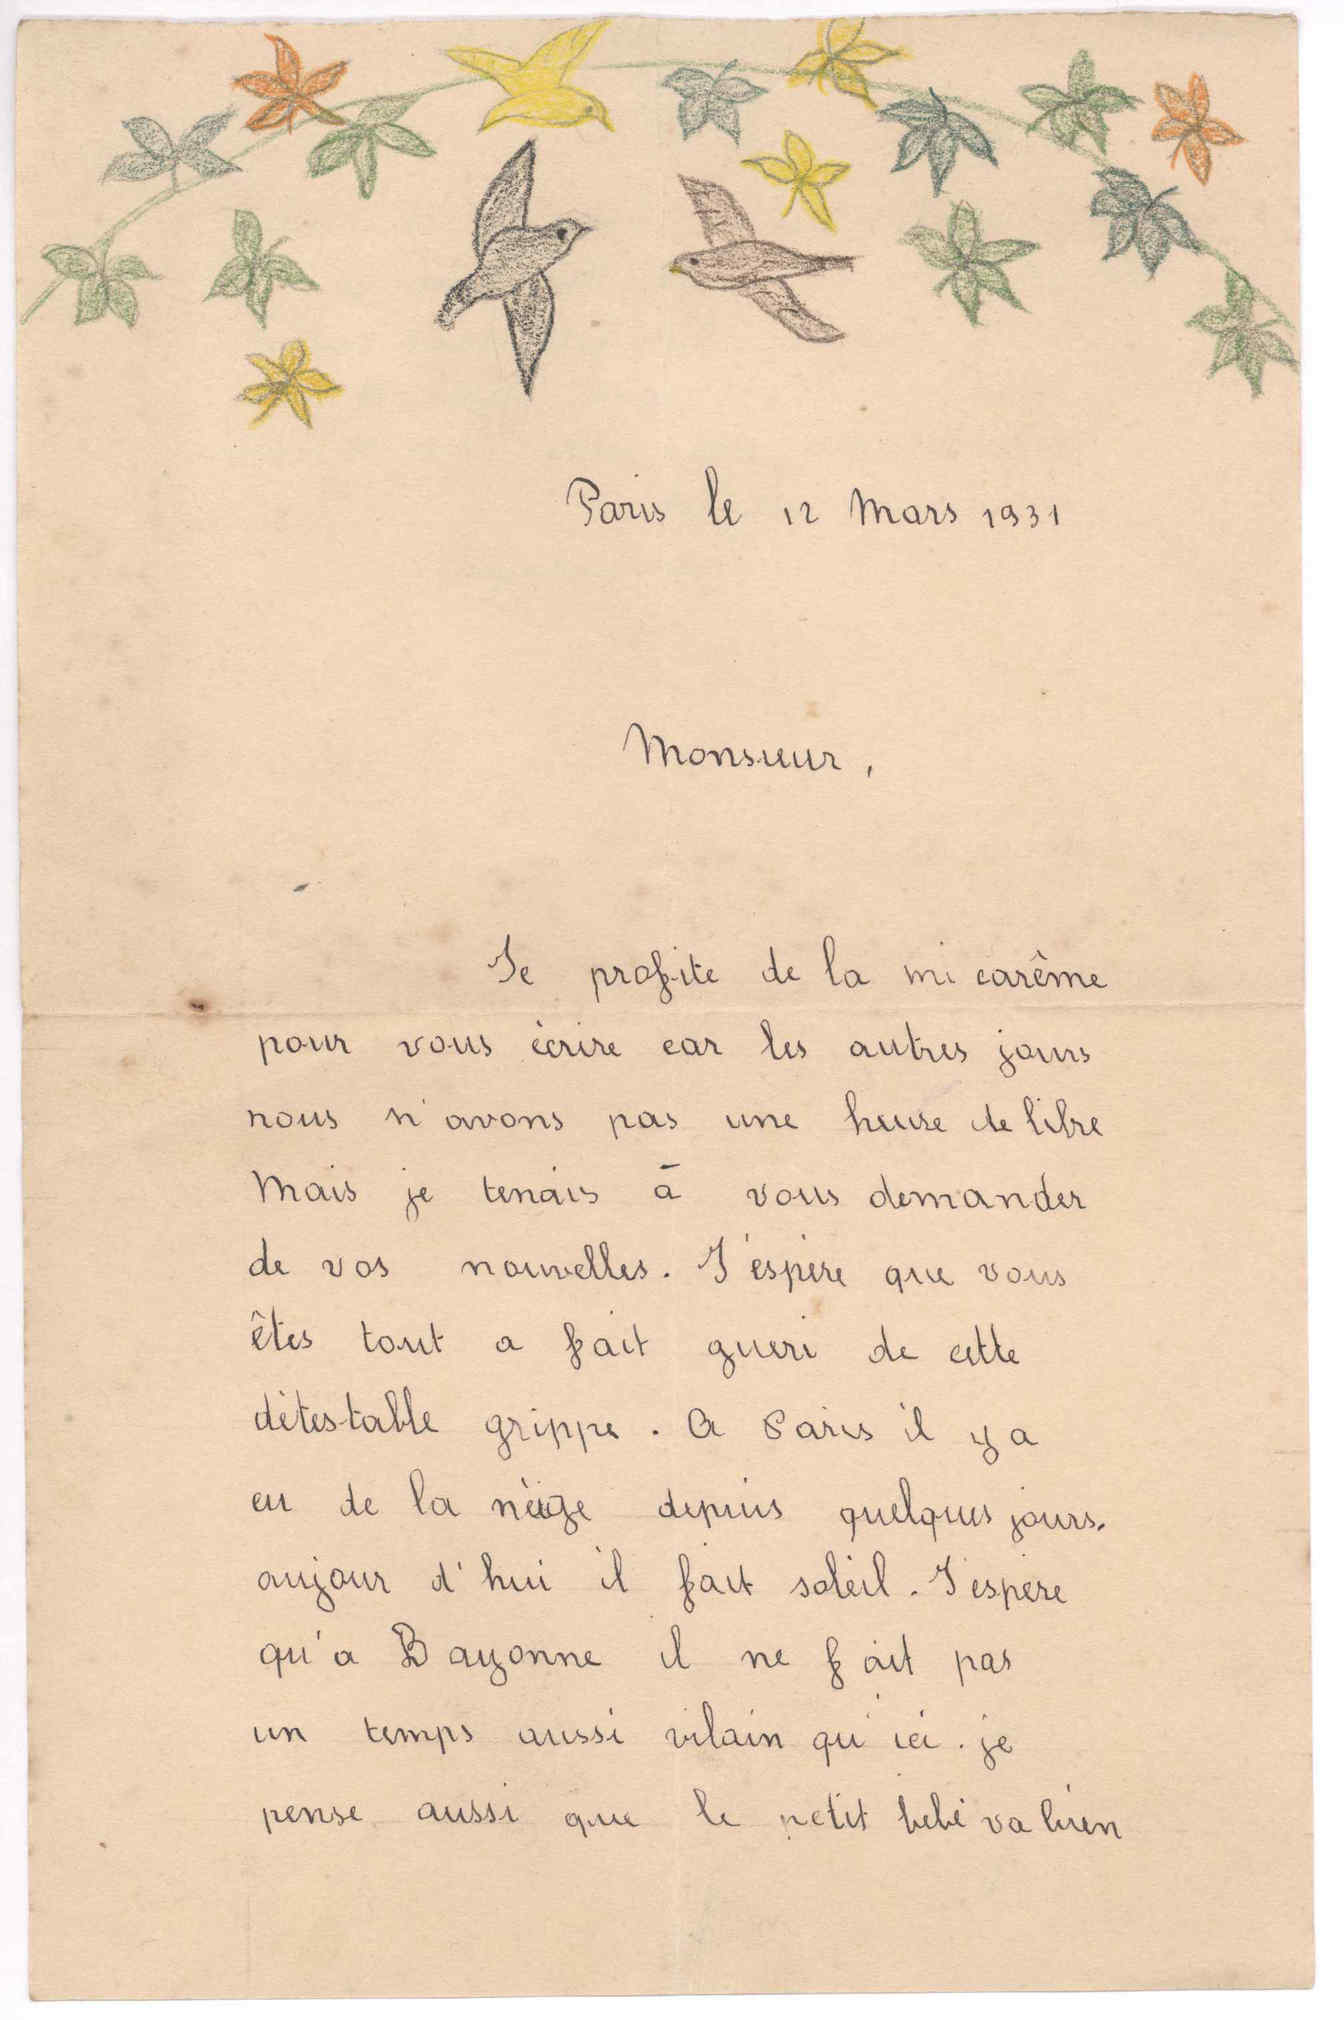 Paris le 12 Mars 1931
Monsieur,
Je profite de la mi carême
pour vous écrire car les autres jours
nous n'avons pas une heure de libre
Mais je tenais à vous demander
de vos nouvelles. J'espère que vous
êtes tout a fait gueri de cette
détestable grippe. A Paris il y a
eu de la neige depuis quelques jours.
aujour d'hui il fait soleil. J'espère
qu'a Bayonne il ne fait pas
un temps aussi vilain qu'ici. je
pense aussi que le petit bébé va bien